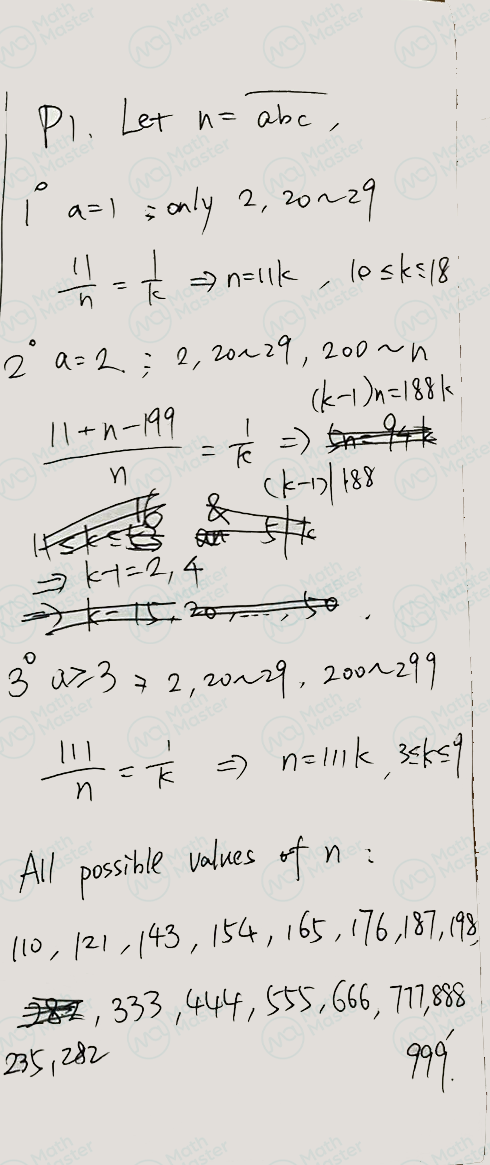 P1. Let n = abc,
1° a=1 : only 2, 20~29
11/n = 1/k ⇒ n=11k , 10≤k≤18
2° a=2 : 2, 20~29, 200~n
(11+n-199)/n = 1/k ⇒ (k-1)n=188k
(k-1)|188
⇒ k-1=2,4
3° a≥3 : 2, 20~29, 200~299
111/n = 1/k ⇒ n=111k, 3≤k≤9
All possible values of n :
110, 121, 143, 154, 165, 176, 187, 198,
333, 444, 555, 666, 777, 888
235, 282 999.
Math Master